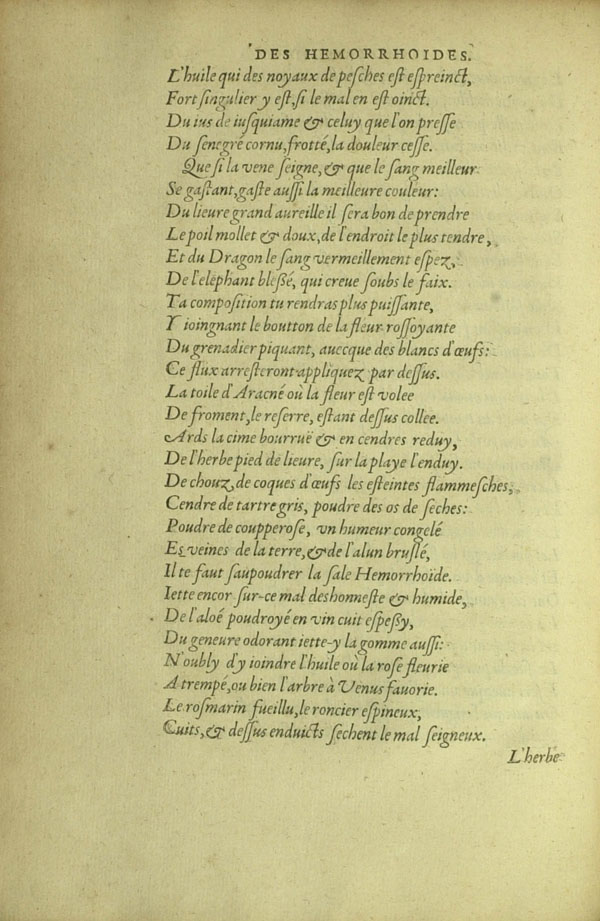 DES HEMORRHOIDES.
L'huile qui des noyaux de peſches eſt eſpreinct,
Fort ſingulier y eſt, ſi le mal en eſt oinct.
Du ius de iuſquiame & celuy que l'on preſſe
Du ſenegré cornu, frotté, la douleur ceſſe.
Que ſi la vene ſeigne, & que le ſang meilleur
Se gaſtant, gaſte auſſi la meilleure couleur:
Du lieure grand aureille il ſera bon de prendre
Le poil mollet & doux, de l'endroit le plus tendre,
Et du Dragon le ſang vermeillement eſpez,
De l'elephant bleßé, qui creue ſoubs le faix.
Ta compoſition tu rendras plus puiſſante,
Y ioingnant le boutton de la fleur roſſoyante
Du grenadier piquant, auecque des blancs d'œufs:
Ce flux arreſteront appliquez par deſſus.
La toile d'Aracné où la fleur eſt volee
De froment, le reſerre, eſtant deſſus collee.
Ards la cime bourruë & en cendres reduy,
De l'herbe pied de lieure, ſur la playe l'enduy.
De chouz, de coques d'œufs les eſteintes flammeſches,
Cendre de tartre gris, poudre des os de ſeches:
Poudre de coupperoſe, vn humeur congelé
Es veines de la terre, & de l'alun bruſlé,
Il te faut ſaupoudrer la ſale Hemorrhoide.
Iette encor ſur-ce mal deshonneſte & humide,
De l'aloé poudroyé en vin cuit eſpeßy,
Du geneure odorant iette-y la gomme auſſi:
N'oubly d'y ioindre l'huile où la roſe fleurie
A trempé, ou bien l'arbre à Venus fauorie.
Le roſmarin fueillu, le roncier eſpineux,
Cuits, & deſſus enduicts ſechent le mal ſeigneux.
L'herbe